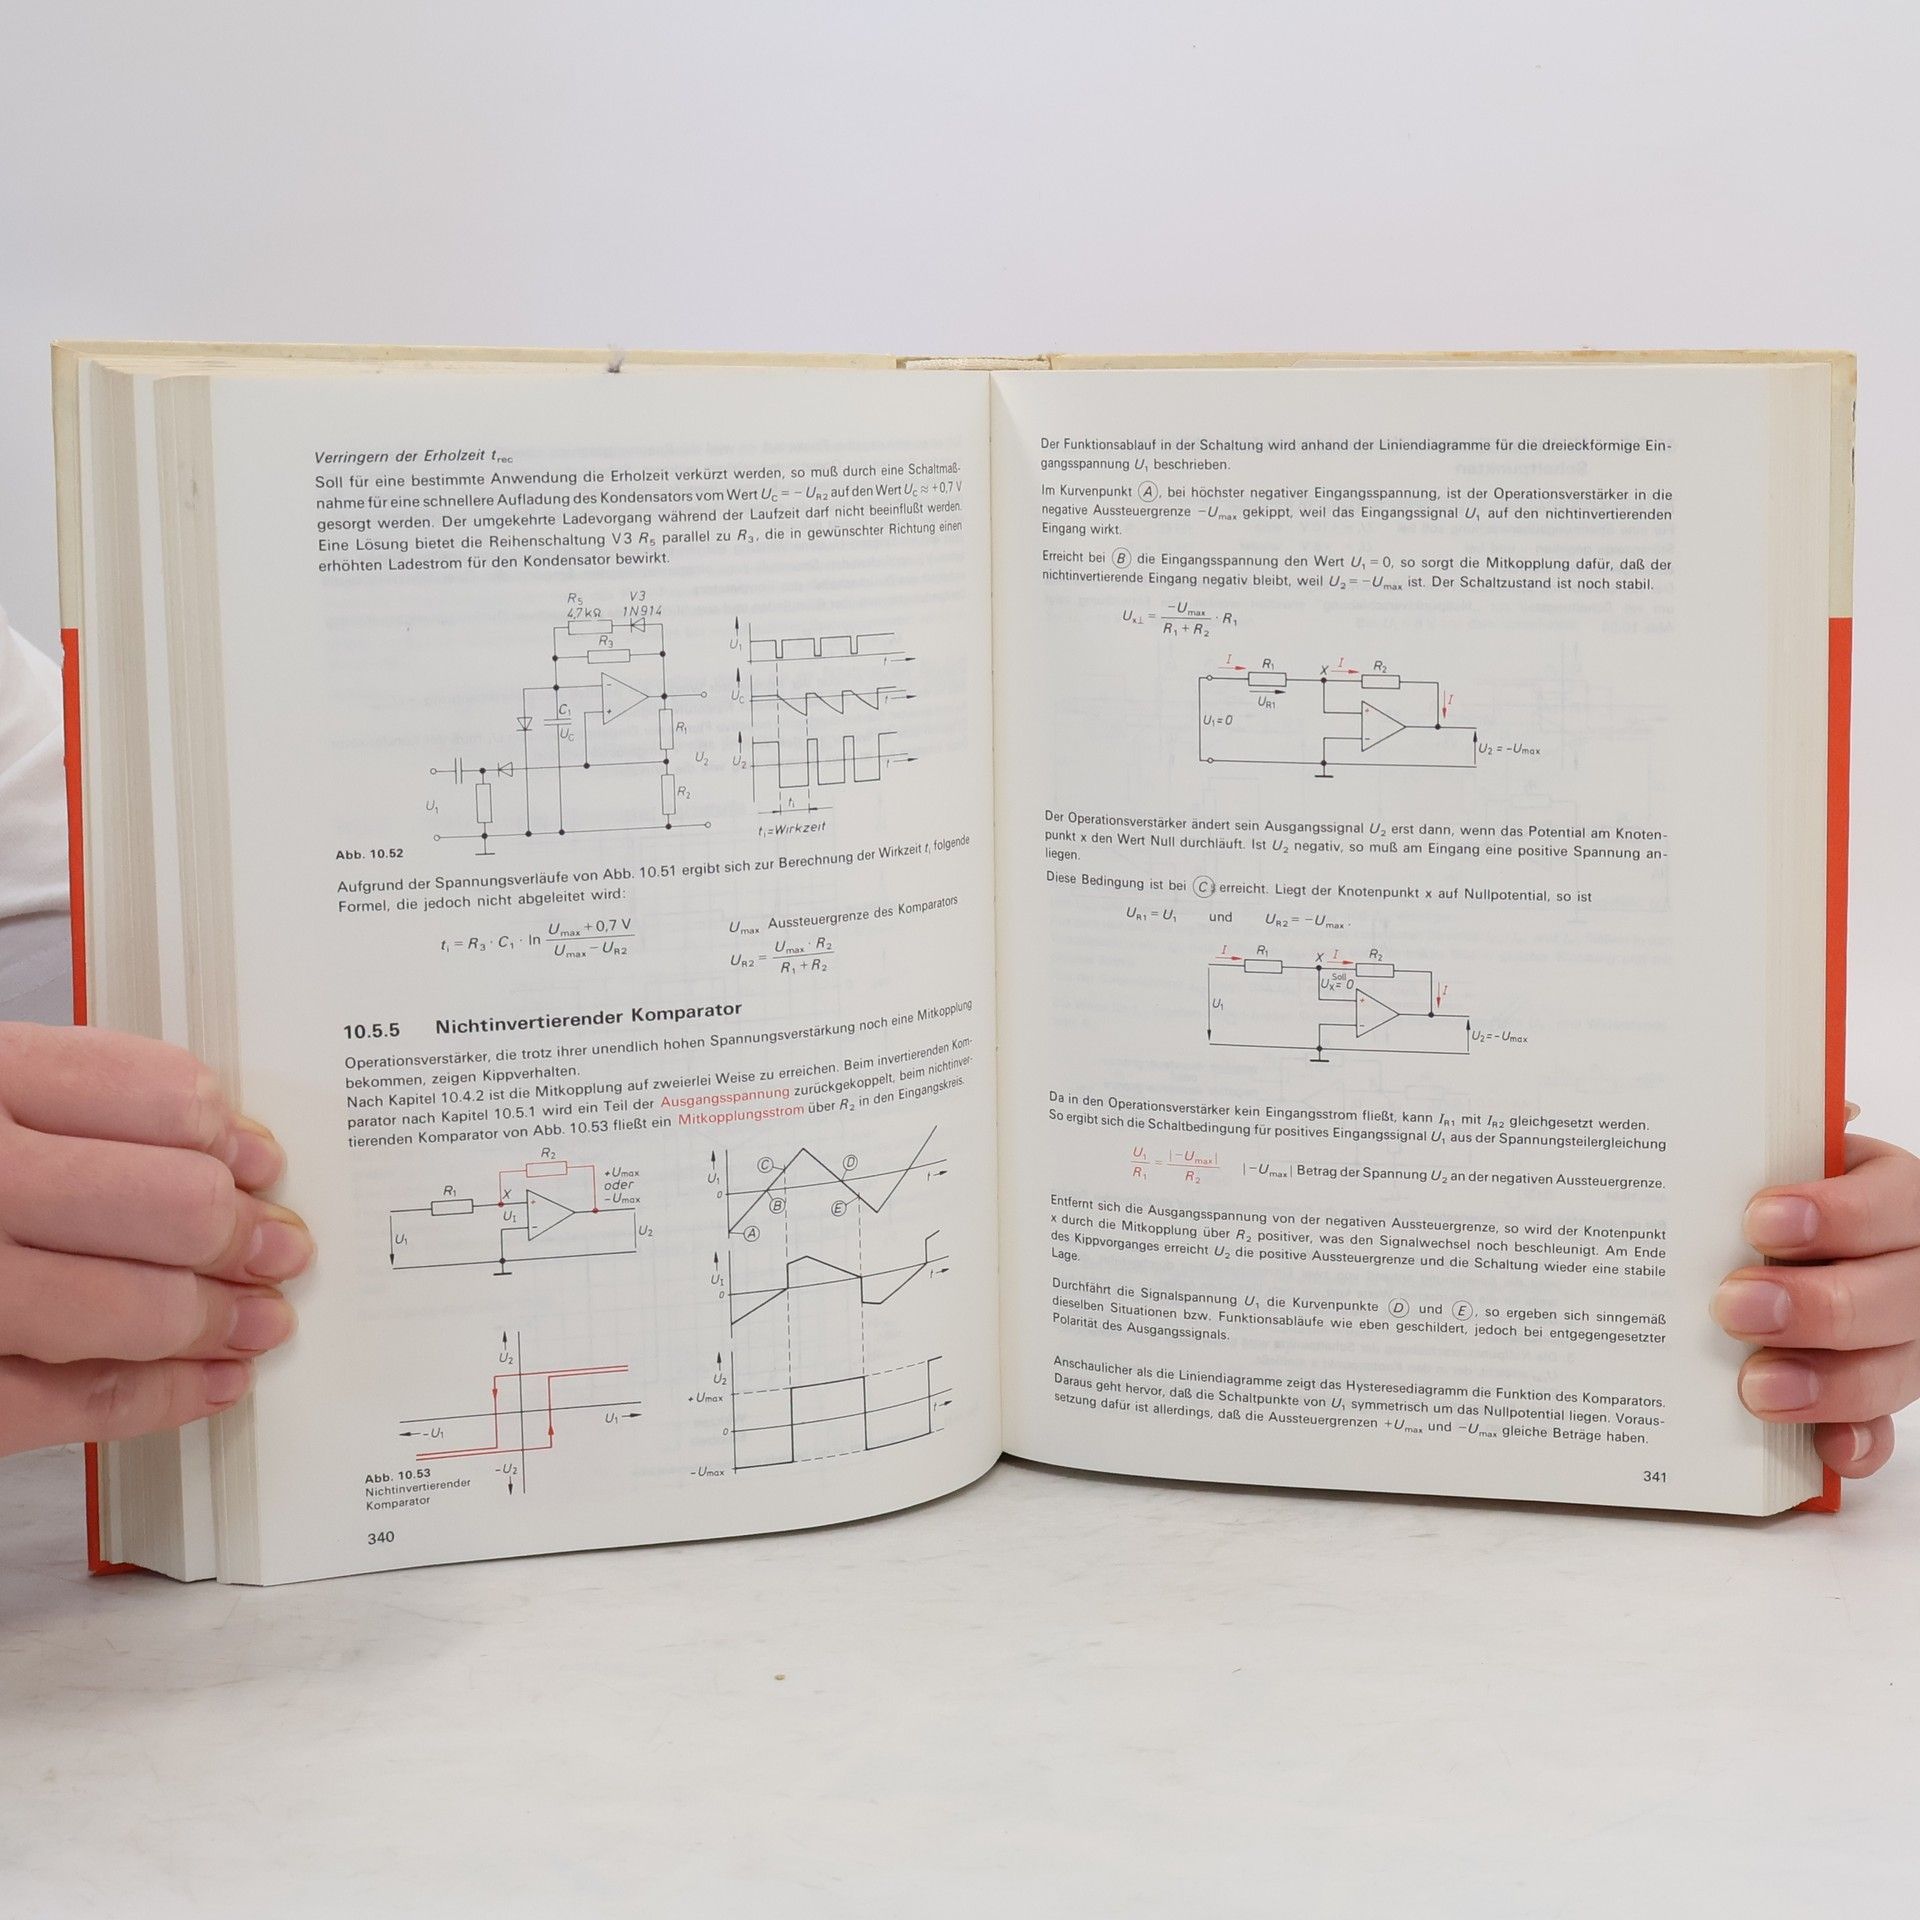 Verringern der Erholzeit t_rec
Soll für eine bestimmte Anwendung die Erholzeit verkürzt werden, so muß durch eine Schaltmaß-
nahme für eine schnellere Aufladung des Kondensators vom Wert U_C = − U_R2 auf den Wert U_C ≈ +0,7 V
gesorgt werden. Der umgekehrte Ladevorgang während der Laufzeit darf nicht beeinflußt werden.
Eine Lösung bietet die Reihenschaltung V3 R₅ parallel zu R₃, die in gewünschter Richtung einen
erhöhten Ladestrom für den Kondensator bewirkt.
R₅ V3
4,7kΩ 1N914
R₃
C₁
U_C
R₁
U₂
R₂
U₁
U₁
t
U_C
t
U₂
t
t_i
t_i=Wirkzeit
Abb. 10.52
Aufgrund der Spannungsverläufe von Abb. 10.51 ergibt sich zur Berechnung der Wirkzeit t_i folgende
Formel, die jedoch nicht abgeleitet wird:
t_i = R₃ · C₁ · ln (U_max + 0,7 V) / (U_max − U_R2)
U_max Aussteuergrenze des Komparators
U_R2 = (U_max · R₂) / (R₁ + R₂)
10.5.5 Nichtinvertierender Komparator
Operationsverstärker, die trotz ihrer unendlich hohen Spannungsverstärkung noch eine Mitkopplung
bekommen, zeigen Kippverhalten.
Nach Kapitel 10.4.2 ist die Mitkopplung auf zweierlei Weise zu erreichen. Beim invertierenden Kom-
parator nach Kapitel 10.5.1 wird ein Teil der Ausgangsspannung zurückgekoppelt, beim nichtinver-
tierenden Komparator von Abb. 10.53 fließt ein Mitkopplungsstrom über R₂ in den Eingangskreis.
R₂
+Umax
oder
−Umax
R₁
X
U_I
U₁
U₂
U₁
0
A
B
C
D
E
t
U_I
0
t
U₂
+Umax
0
−Umax
t
U₂
U₁
−U₁
−U₂
Abb. 10.53
Nichtinvertierender
Komparator
340
Der Funktionsablauf in der Schaltung wird anhand der Liniendiagramme für die dreieckförmige Ein-
gangsspannung U₁ beschrieben.
Im Kurvenpunkt Ⓐ, bei höchster negativer Eingangsspannung, ist der Operationsverstärker in die
negative Aussteuergrenze −U_max gekippt, weil das Eingangssignal U₁ auf den nichtinvertierenden
Eingang wirkt.
Erreicht bei Ⓑ die Eingangsspannung den Wert U₁ = 0, so sorgt die Mitkopplung dafür, daß der
nichtinvertierende Eingang negativ bleibt, weil U₂ = −U_max ist. Der Schaltzustand ist noch stabil.
U_x⊥ = (−U_max) / (R₁ + R₂) · R₁
I R₁ X I R₂
U_R1
I
U₁=0
U₂ = −Umax
Der Operationsverstärker ändert sein Ausgangssignal U₂ erst dann, wenn das Potential am Knoten-
punkt x den Wert Null durchläuft. Ist U₂ negativ, so muß am Eingang eine positive Spannung an-
liegen.
Diese Bedingung ist bei Ⓒ erreicht. Liegt der Knotenpunkt x auf Nullpotential, so ist
U_R1 = U₁ und U_R2 = −U_max.
I R₁ X I R₂
Soll
U_x= 0
I
U₁
U₂=−Umax
Da in den Operationsverstärker kein Eingangsstrom fließt, kann I_R1 mit I_R2 gleichgesetzt werden.
So ergibt sich die Schaltbedingung für positives Eingangssignal U₁ aus der Spannungsteilergleichung
U₁ / R₁ = |−U_max| / R₂ |−U_max| Betrag der Spannung U₂ an der negativen Aussteuergrenze.
Entfernt sich die Ausgangsspannung von der negativen Aussteuergrenze, so wird der Knotenpunkt
x durch die Mitkopplung über R₂ positiver, was den Signalwechsel noch beschleunigt. Am Ende
des Kippvorganges erreicht U₂ die positive Aussteuergrenze und die Schaltung wieder eine stabile
Lage.
Durchfährt die Signalspannung U₁ die Kurvenpunkte Ⓓ und Ⓔ, so ergeben sich sinngemäß
dieselben Situationen bzw. Funktionsabläufe wie eben geschildert, jedoch bei entgegengesetzter
Polarität des Ausgangssignals.
Anschaulicher als die Liniendiagramme zeigt das Hysteresediagramm die Funktion des Komparators.
Daraus geht hervor, daß die Schaltpunkte von U₁ symmetrisch um das Nullpotential liegen. Voraus-
setzung dafür ist allerdings, daß die Aussteuergrenzen +U_max und −U_max gleiche Beträge haben.
341